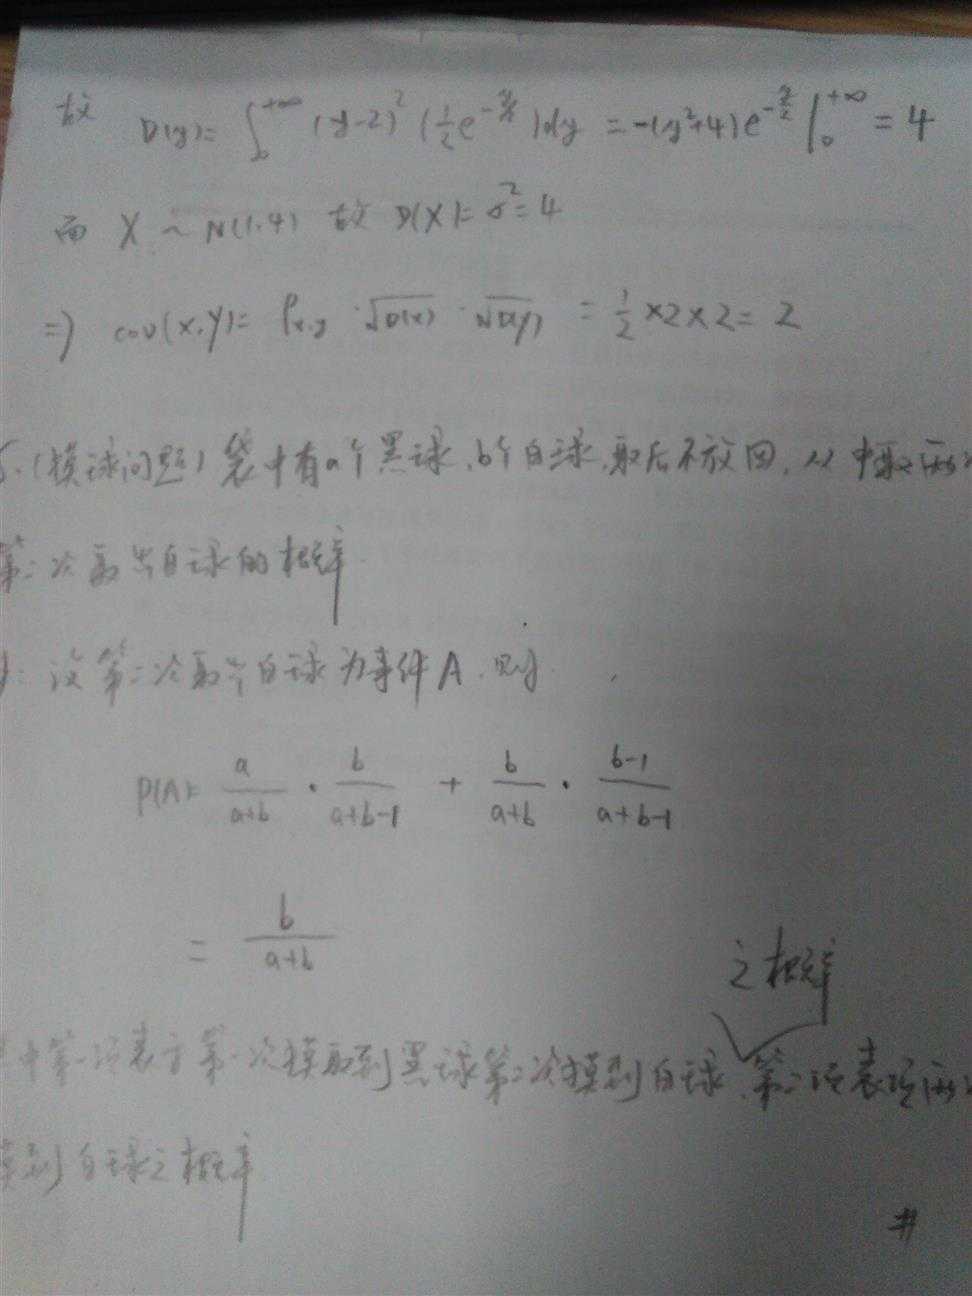 故 D(y)= ∫₀^{+∞} (y-2)² (½e^{-y/2})dy = -(y²+4)e^{-y/2} |₀^{+∞} = 4
而 X ~ N(1,4) 故 D(X)= σ²=4
=> cov(x,y)= ρx,y · √D(x) · √D(y) = ½ ×2×2= 2
(摸球问题) 袋中有a个黑球,b个白球,取后不放回,从中取两
第二次取出白球的概率
: 设第二次取出白球为事件A,则
P(A)= a/(a+b) · b/(a+b-1) + b/(a+b) · (b-1)/(a+b-1)
= b/(a+b)
之概率
中第一项表示第一次摸取到黑球第二次摸到白球,第二项表项两
摸到白球之概率
#